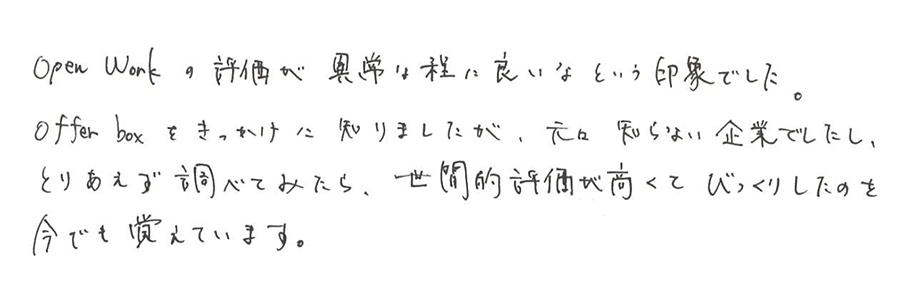 Open Workの評価が異常な程に良いなという印象でした。
Offer boxをきっかけに知りましたが、元々知らない企業でしたし、
とりあえず調べてみたら、世間的評価が高くてびっくりしたのを
今でも覚えています。